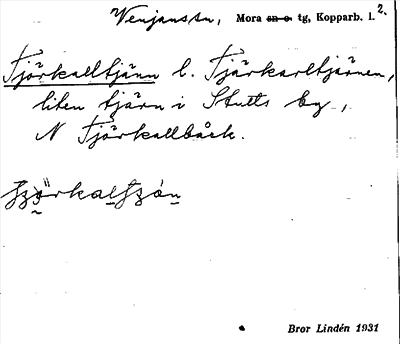 Venjans sn, Mora sn o. tg, Kopparb. l. 2.
Tjörkalltjänn l. Tjärkarltjärnen,
liten tjärn i Stutts by,
N Tjörkallbäck.
Bror Lindén 1931